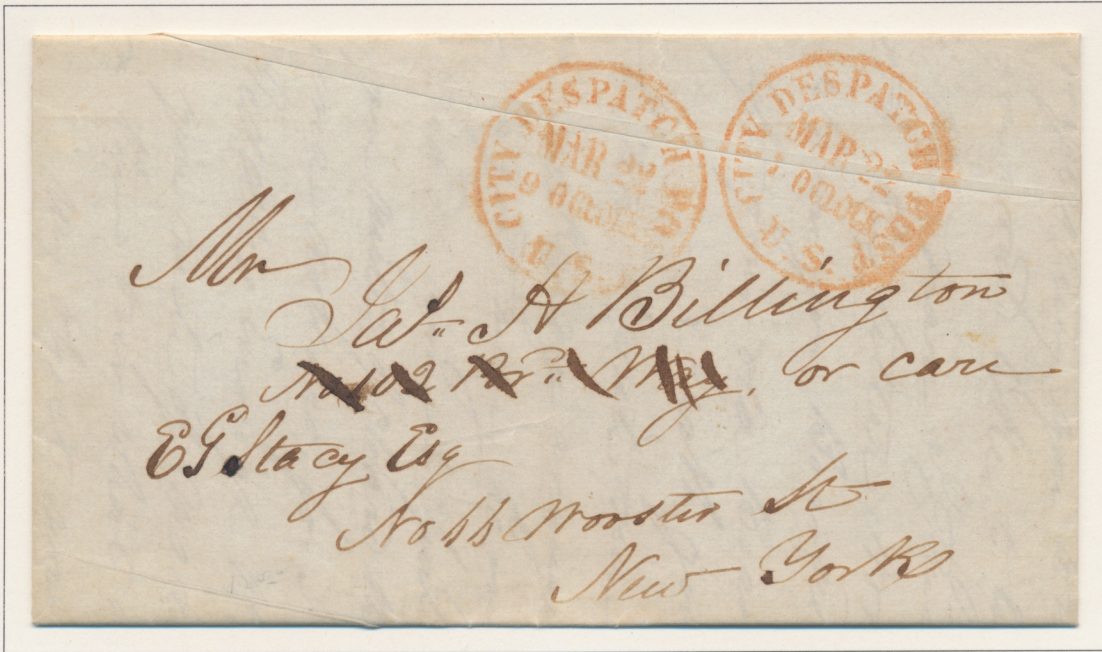 CITY DESPATCH POST
MAR 22
9 OCLOCK
U.S.
CITY DESPATCH POST
MAR 22
OCLOCK
U.S.
Mr
Jas. H Billington
No 102 Br. Way, or care
E G Stacy Esq
No 44 Wooster St
New York